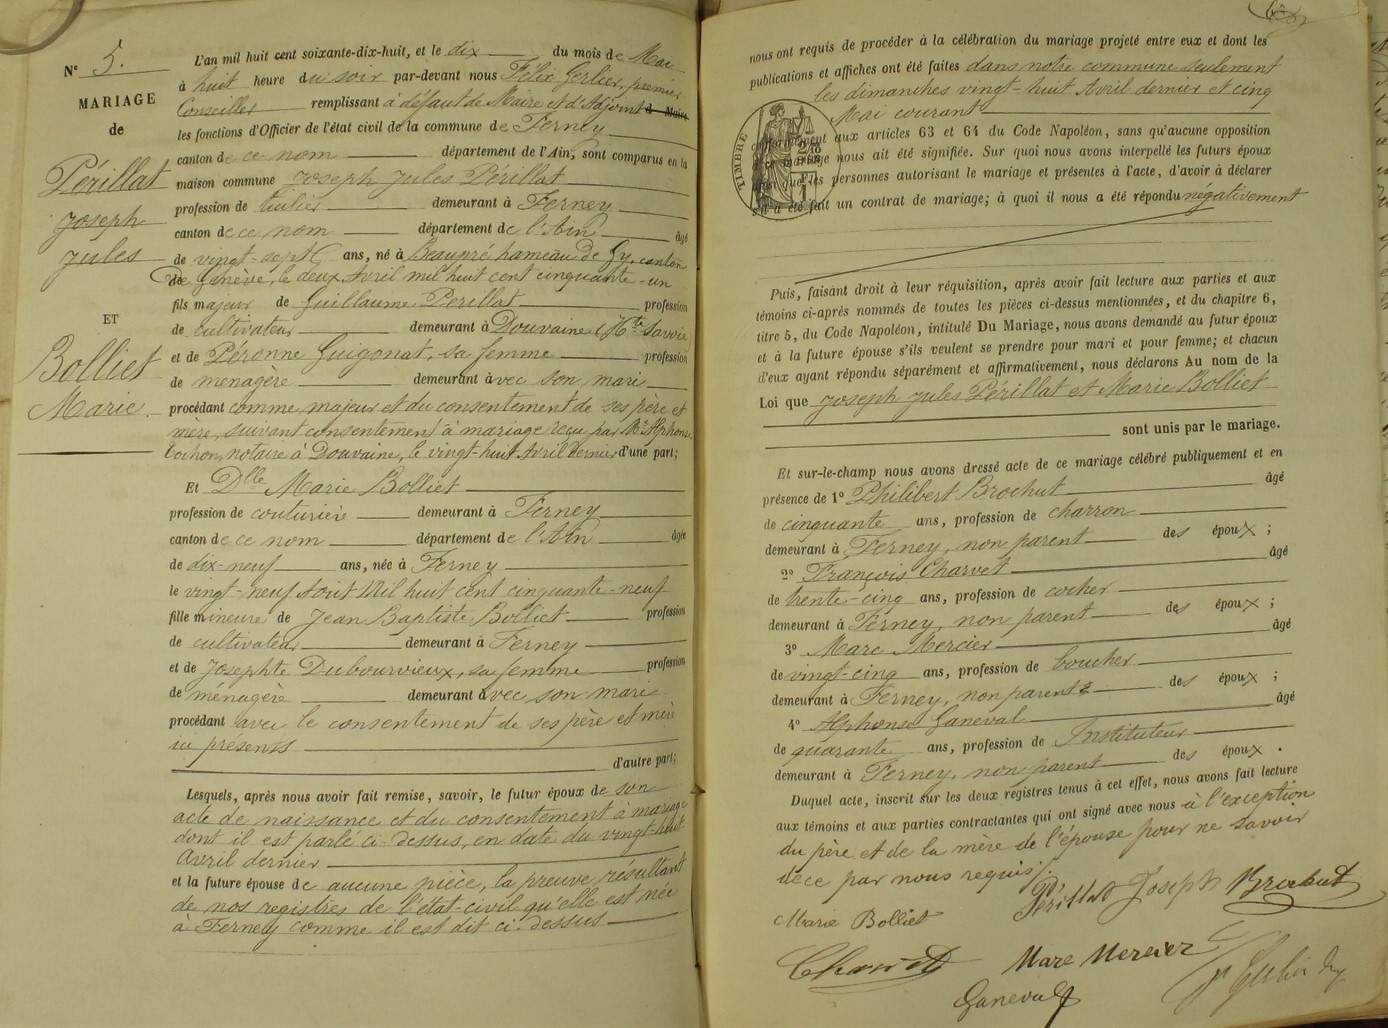 N° 5.
MARIAGE
de
Périllat
Joseph
Jules
ET
Bolliet
Marie.
L'an mil huit cent soixante-dix-huit, et le dix du mois de Mai
à huit heure du soir par-devant nous Félix Gerlier, premier
Conseiller remplissant à défaut de Maire et d'Adjoint d Maire
les fonctions d'Officier de l'état civil de la commune de Ferney
canton de ce nom département de l'Ain, sont comparus en la
maison commune Joseph Jules Périllat
profession de tuilier demeurant à Ferney
canton de ce nom département de l'Ain âgé
de vingt-sept ans, né à Beaupré hameau de Gy, canton
de Genève, le deux Avril mil huit cent cinquante-un
fils majeur de Guillaume Périllat profession
de cultivateur demeurant à Douvaine (Hte Savoie)
et de Péronne Guigonat, sa femme profession
de ménagère demeurant avec son mari
procédant comme majeur et du consentement de ses père et
mère, suivant consentement à mariage reçu par Me Alphonse
Cochon, notaire à Douvaine, le vingt-huit Avril dernier d'une part;
Et Dlle Marie Bolliet
profession de couturière demeurant à Ferney
canton de ce nom département de l'Ain âgée
de dix-neuf ans, née à Ferney
le vingt-neuf Aout Mil huit cent cinquante-neuf
fille mineure de Jean Baptiste Bolliet profession
de cultivateur demeurant à Ferney
et de Josephte Dubourvieux, sa femme profession
de ménagère demeurant avec son mari
procédant avec le consentement de ses père et mère
ici présents
d'autre part;
Lesquels, après nous avoir fait remise, savoir, le futur époux de son
acte de naissance et du consentement à mariage
dont il est parlé ci-dessus, en date du vingt-huit
Avril dernier
et la future épouse de aucune pièce, la preuve résultant
de nos registres de l'état-civil qu'elle est née
à Ferney comme il est dit ci-dessus
nous ont requis de procéder à la célébration du mariage projeté entre eux et dont les
publications et affiches ont été faites dans notre commune seulement
les dimanches vingt-huit Avril dernier et cinq
Mai courant
TIMBRE
conformément aux articles 63 et 64 du Code Napoléon, sans qu'aucune opposition
à ce mariage nous ait été signifiée. Sur quoi nous avons interpellé les futurs époux
ainsi que les personnes autorisant le mariage et présentes à l'acte, d'avoir à déclarer
s'il a été fait un contrat de mariage; à quoi il nous a été répondu négativement
Puis, faisant droit à leur réquisition, après avoir fait lecture aux parties et aux
témoins ci-après nommés de toutes les pièces ci-dessus mentionnées, et du chapitre 6,
titre 5, du Code Napoléon, intitulé Du Mariage, nous avons demandé au futur époux
et à la future épouse s'ils veulent se prendre pour mari et pour femme; et chacun
d'eux ayant répondu séparément et affirmativement, nous déclarons Au nom de la
Loi que Joseph Jules Périllat et Marie Bolliet
sont unis par le mariage.
Et sur-le-champ nous avons dressé acte de ce mariage célébré publiquement et en
présence de 1° Philibert Brochut âgé
de cinquante ans, profession de charron
demeurant à Ferney, non parent des époux;
2° François Charvet âgé
de trente-cinq ans, profession de cocher
demeurant à Ferney, non parent des époux;
3° Marc Mercier âgé
de vingt-cinq ans, profession de boucher
demeurant à Ferney, non parent des époux;
4° Alphonse Ganeval âgé
de quarante ans, profession de Instituteur
demeurant à Ferney, non parent des époux.
Duquel acte, inscrit sur les deux registres tenus à cet effet, nous avons fait lecture
aux témoins et aux parties contractantes qui ont signé avec nous à l'exception
du père et de la mère de l'épouse pour ne savoir
de ce par nous requis.
Périllat Joseph Brochut
Marie Bolliet
Charvet Marc Mercier
Ganeval